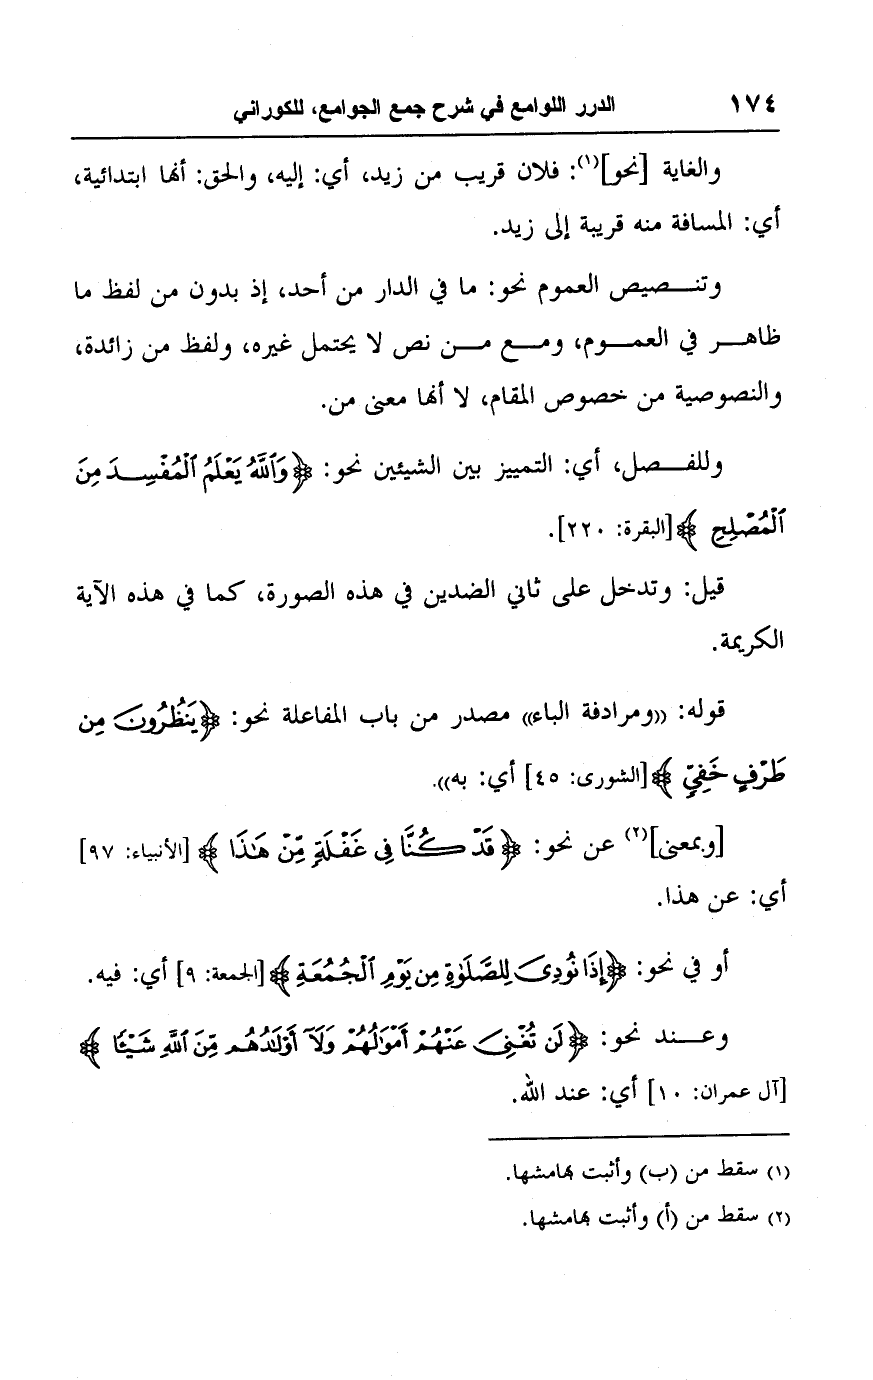 ١٧٤ الدرر اللوامع في شرح جمع الجوامع، للكوراني
والغاية [نحو](١): فلان قريب من زيد، أي: إليه، والحق: أنها ابتدائية،
أي: المسافة منه قريبة إلى زيد.
وتنـــصيص العموم نحو: ما في الدار من أحد، إذ بدون من لفظ ما
ظاهــر في العمـــوم، ومـــع مـــن نص لا يحتمل غيره، ولفظ من زائدة،
والنصوصية من خصوص المقام، لا أنها معنى من.
وللفـــصل، أي: التمييز بين الشيئين نحو: ﴿وَٱللَّهُ يَعْلَمُ ٱلْمُفْسِدَ مِنَ
ٱلْمُصْلِحِ﴾ [البقرة: ٢٢٠].
قيل: وتدخل على ثاني الضدين في هذه الصورة، كما في هذه الآية
الكريمة.
قوله: ((ومرادفة الباء)) مصدر من باب المفاعلة نحو: ﴿يَنظُرُونَ مِن
طَرْفٍ خَفِيٍّ﴾ [الشورى: ٤٥] أي: به)).
[وبمعنى](٢) عن نحو: ﴿قَدْ كُنَّا فِى غَفْلَةٍ مِّنْ هَٰذَا﴾ [الأنبياء: ٩٧]
أي: عن هذا.
أو في نحو: ﴿إِذَا نُودِىَ لِلصَّلَوٰةِ مِن يَوْمِ ٱلْجُمُعَةِ﴾ [الجمعة: ٩] أي: فيه.
وعـــند نحو: ﴿لَن تُغْنِىَ عَنْهُمْ أَمْوَٰلُهُمْ وَلَآ أَوْلَٰدُهُم مِّنَ ٱللَّهِ شَيْـًٔا﴾
[آل عمران: ١٠] أي: عند الله.
(١) سقط من (ب) وأثبت بهامشها.
(٢) سقط من (أ) وأثبت بهامشها.